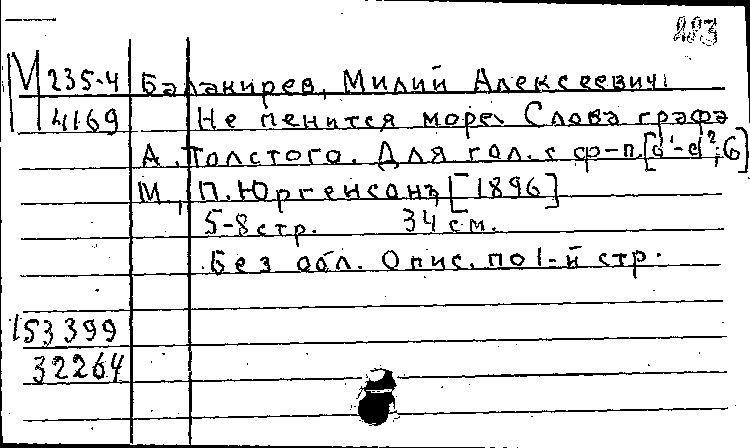 283
М 235-4 Балакирев, Милий Алексеевич.
4169 Не пенится море. Слова графа
А. Толстого. Для гол. с ф-п. [d¹-d²; G]
М., П. Юргенсонъ, [1896]
5-8 стр. 34 см.
Без обл. Опис. по 1-й стр.
153399
32264